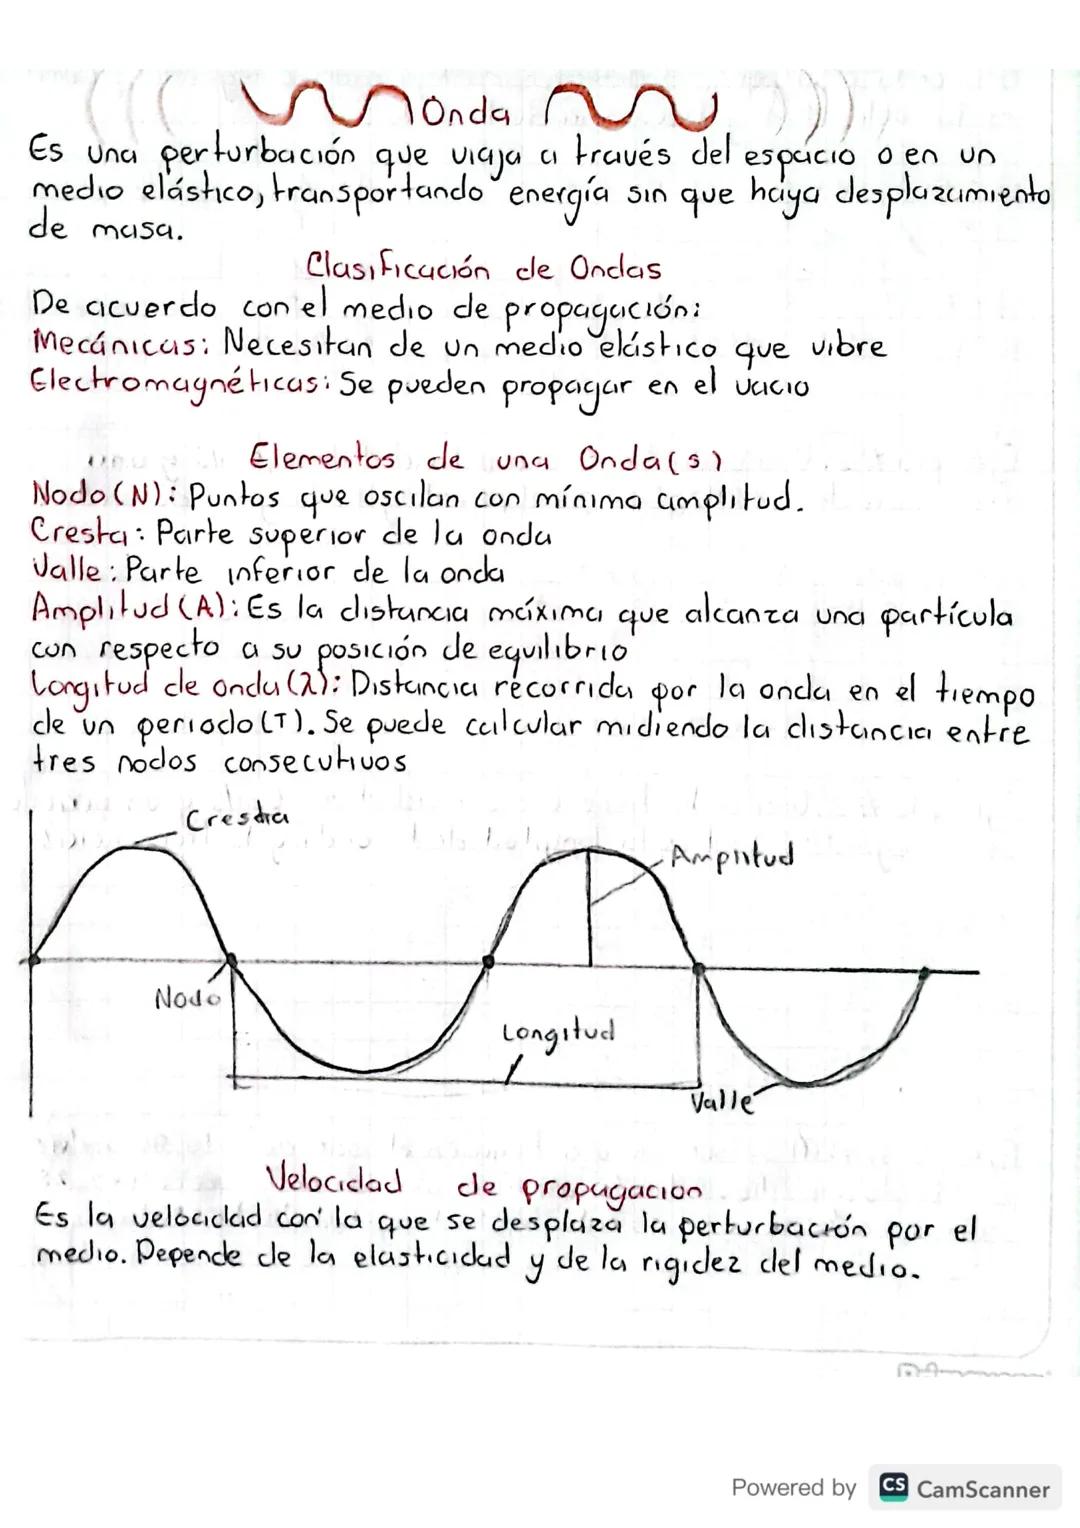 Onda
Es una perturbación que viaja a través del espacio o en un
medio elástico, transportando energía sin que haya desplazamiento
de masa.
Clasificación de Ondas
De acuerdo con el medio de propagación:
Mecánicas: Necesitan de un medio elástico que vibre
Electromagnéticas: Se pueden propagar en el vacio
Elementos de una Onda(s)
Nodo (N): Puntos que oscilan con mínima amplitud.
Cresta: Parte superior de la onda
Valle: Parte inferior de la onda
Amplitud (A): Es la distancia máxima que alcanza una partícula
con respecto a su posición de equilibrio
Longitud de onda (λ): Distancia recorrida por la onda en el tiempo
de un periodo (T). Se puede calcular midiendo la distancia entre
tres nodos consecutivos
Cresta
Amplitud
Nodo
Longitud
Valle
Velocidad de propagacion
Es la velocidad con la que se desplaza la perturbación por el
medio. Depende de la elasticidad y de la rigidez del medio.
Powered by CS CamScanner